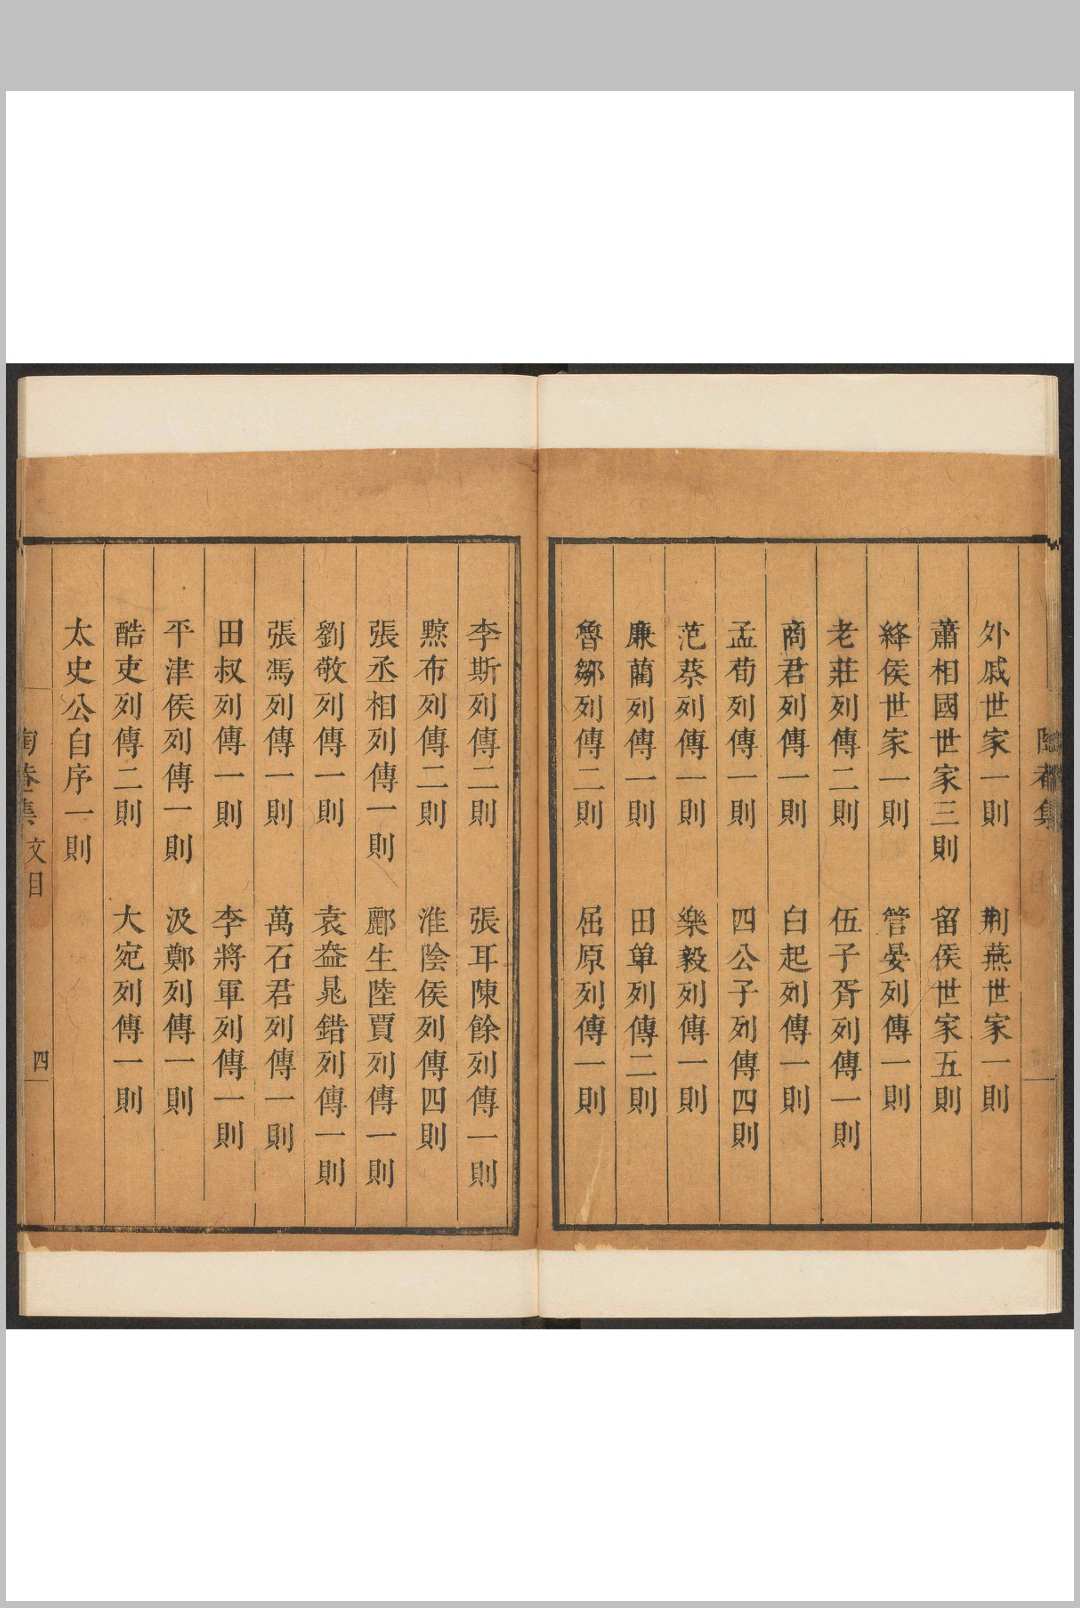 外戚世家一則　荆燕世家一則
蕭相國世家三則　留侯世家五則
絳侯世家一則　管晏列傳一則
老莊列傳二則　伍子胥列傳一則
商君列傳一則　白起列傳一則
孟荀列傳一則　四公子列傳四則
范蔡列傳一則　樂毅列傳一則
廉藺列傳一則　田单列傳二則
魯鄒列傳二則　屈原列傳一則
李斯列傳二則　張耳陳餘列傳一則
黥布列傳二則　淮陰侯列傳四則
張丞相列傳一則　酈生陸賈列傳一則
劉敬列傳一則　袁盎晁錯列傳一則
張馮列傳一則　萬石君列傳一則
田叔列傳一則　李將軍列傳一則
平津侯列傳一則　汲鄭列傳一則
酷吏列傳二則　大宛列傳一則
太史公自序一則
陶菴集　文目　四